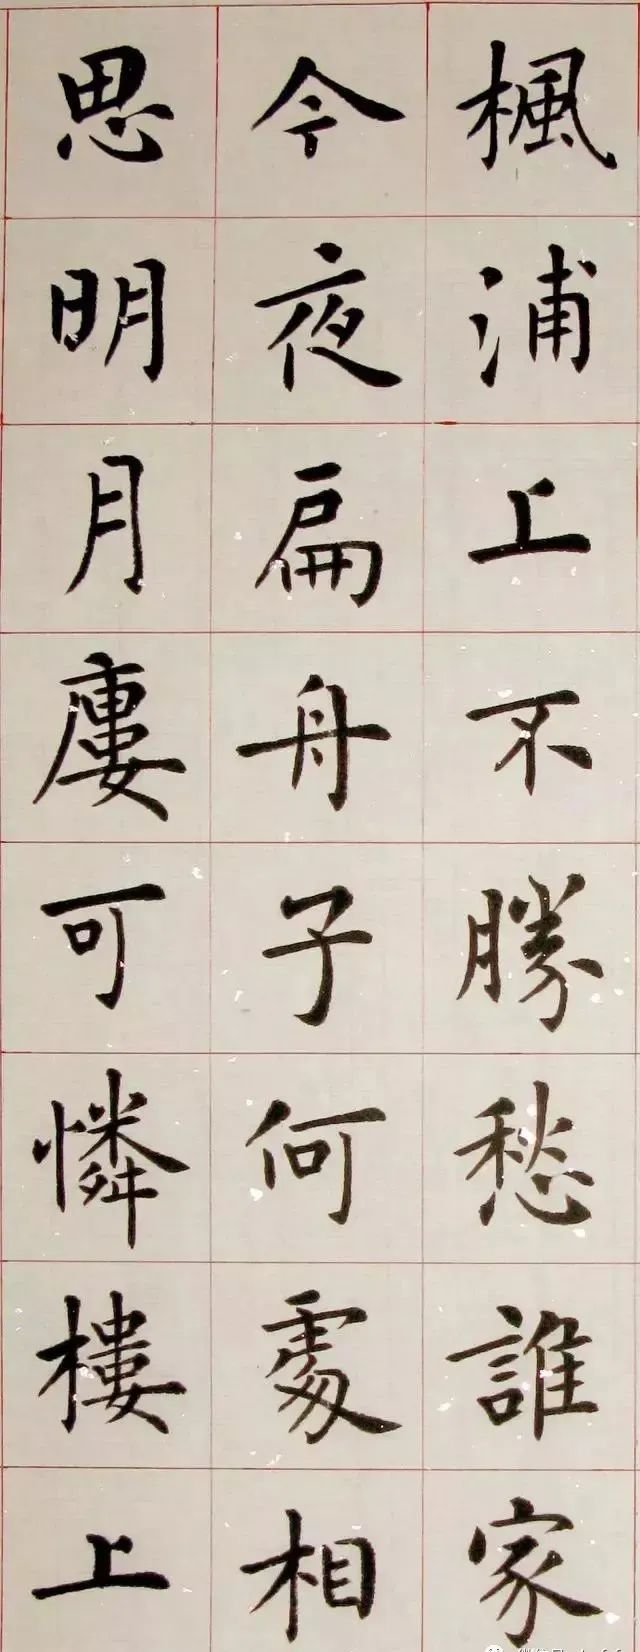 楓浦上不勝愁誰家
今夜扁舟子何處相
思明月廔可憐樓上